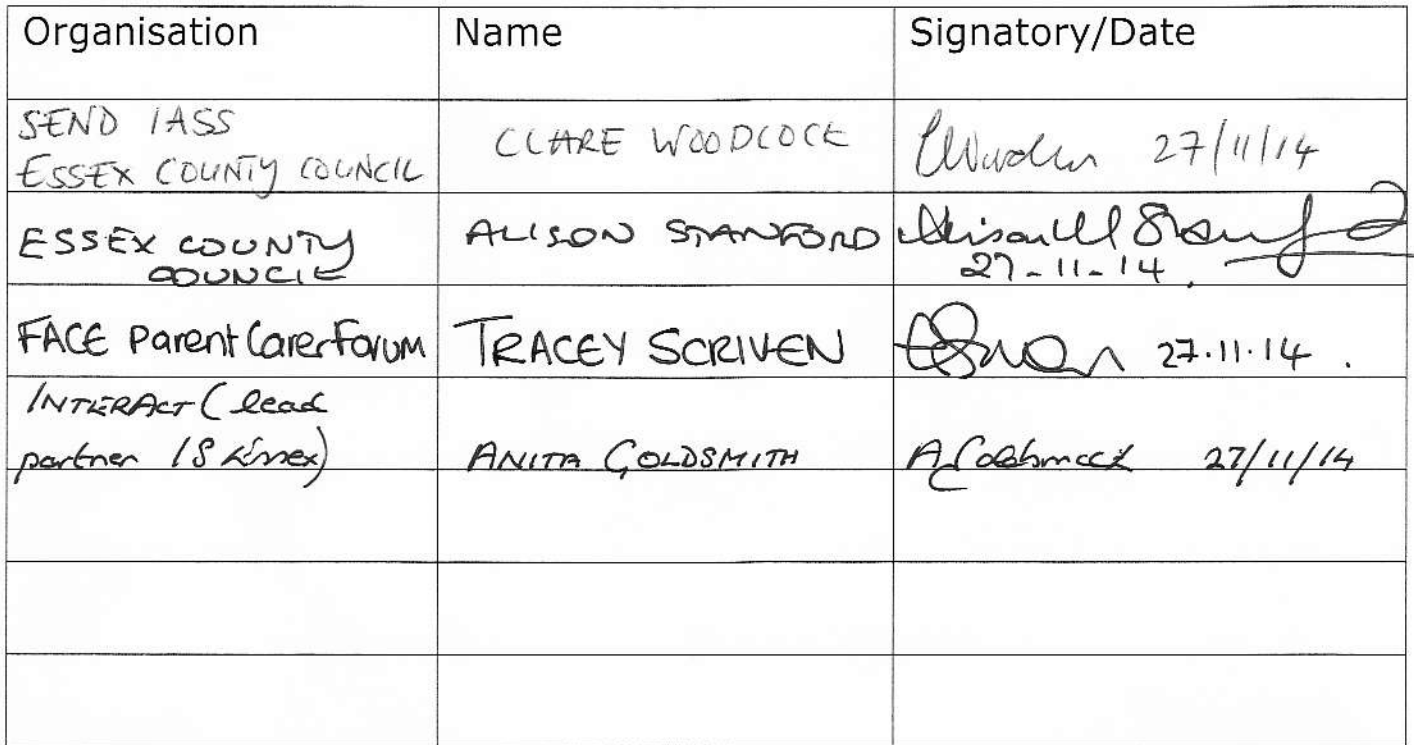 Organisation Name Signatory/Date
SEND IASS
ESSEX COUNTY COUNCIL
CLARE WOODCOCK
27/11/14
ESSEX COUNTY
COUNCIL
ALISON STANFORD
27-11-14.
FACE Parent Carer Forum
TRACEY SCRIVEN
27.11.14.
INTERACT (lead
partner IS Essex)
ANITA GOLDSMITH
27/11/14